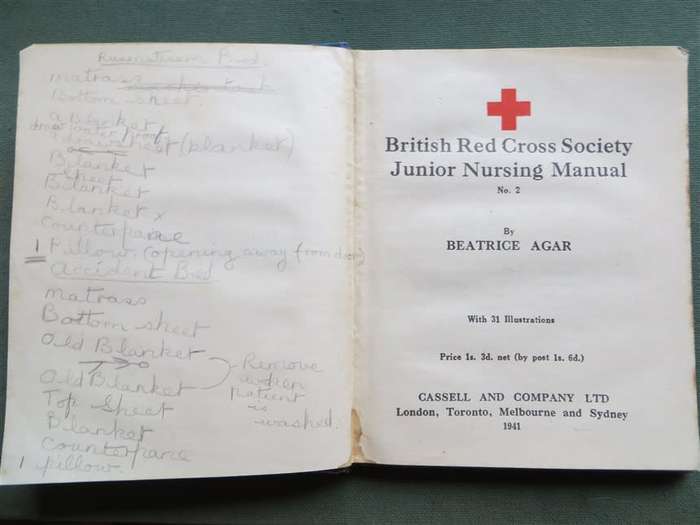 Rheumatism Bed
Matrass
Bottom sheet
a Blacket
draw water/proof
sheet (blanket)
Blanket
Sheet
Blanket
Blanket x
Counterpane
1 Pillow (opening away from door)
Accident Bed
Matrass
Bottom sheet
Old Blanket
Old Blanket
Remove
when
Patient
is
washed.
Top Sheet
Blanket
Counterpane
1 pillow.
British Red Cross Society
Junior Nursing Manual
No. 2
By
BEATRICE AGAR
With 31 Illustrations
Price 1s. 3d. net (by post 1s. 6d.)
CASSELL AND COMPANY LTD
London, Toronto, Melbourne and Sydney
1941